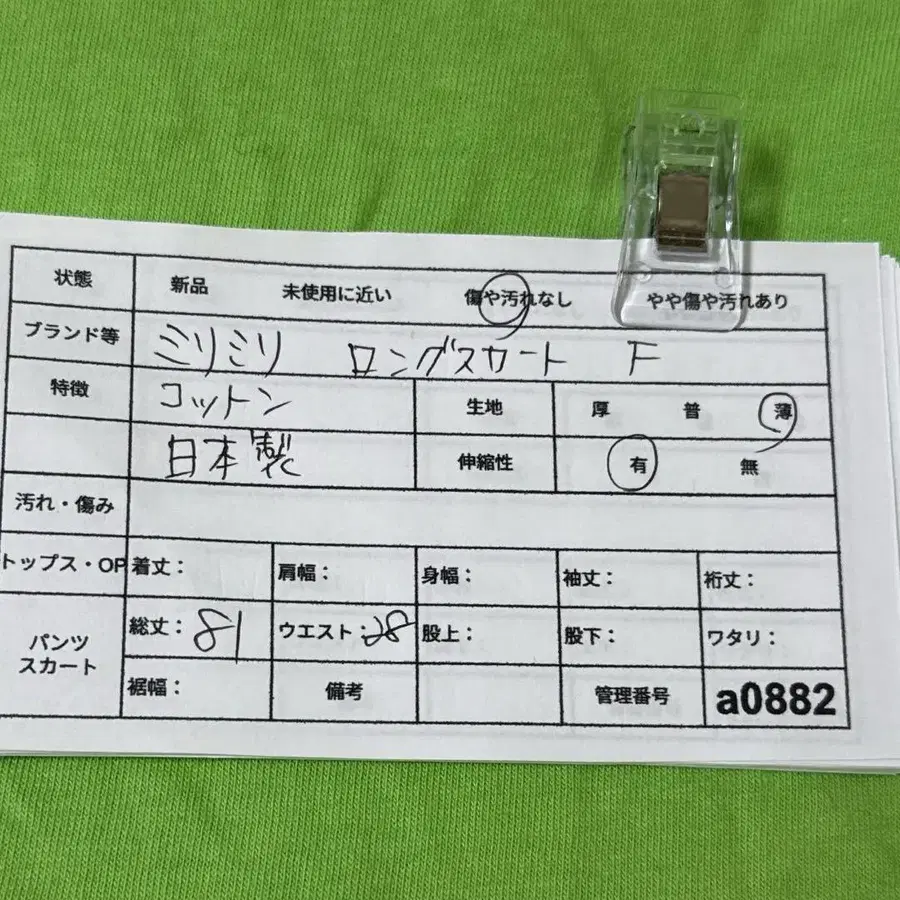 状態 新品 未使用に近い 傷や汚れなし やや傷や汚れあり
ブランド等 ミリミリ ロングスカート F
特徴 コットン 生地 厚 普 薄
日本製 伸縮性 有 無
汚れ・傷み
トップス・OP 着丈： 肩幅： 身幅： 袖丈： 裄丈：
パンツ
スカート
総丈：81 ウエスト：28 股上： 股下： ワタリ：
裾幅： 備考 管理番号 a0882